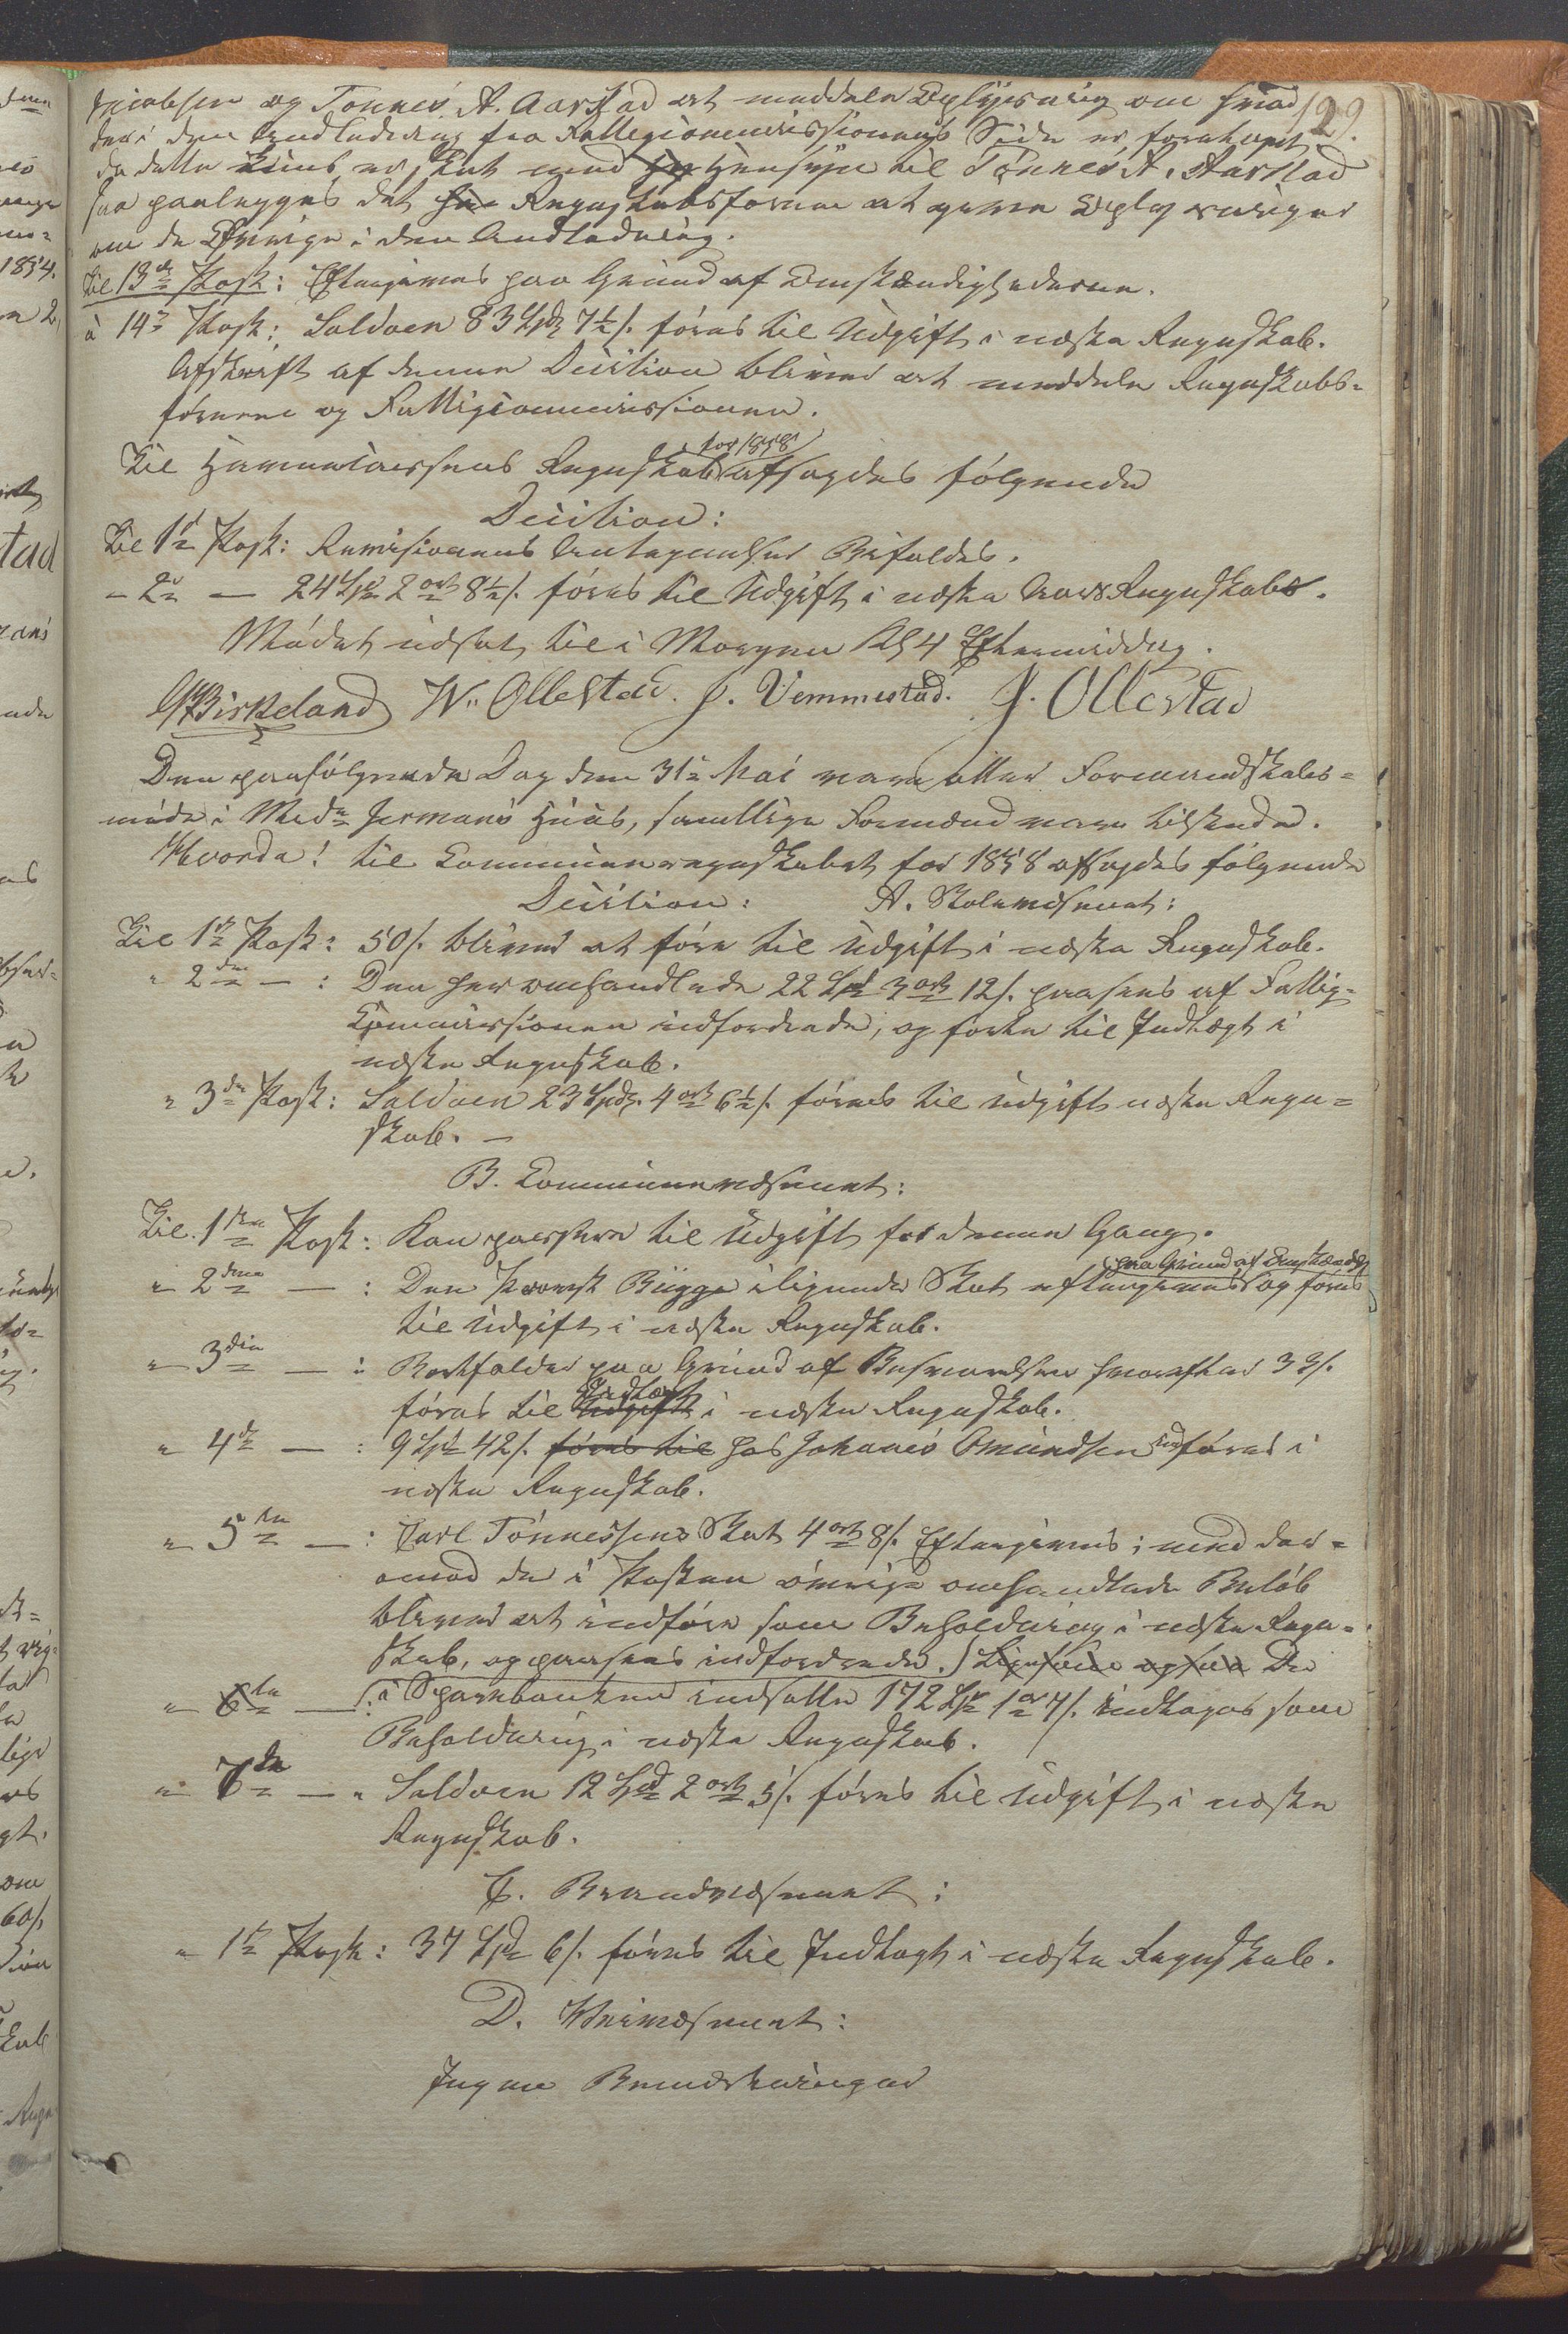 Jacobsen og Tønnes A. Aarstad at meddele Oplysning om hvad 129.
der i den Andledning fra Fattigcommissionens Side er foretaget,
da dette kuns er skeet med Hensyn til Tønnes A. Aarstad
saa paalægges det Regnskabsføreren at give Oplysninger
om de Øvrige i den Andledning.
Til 13de Post: Eftergives paa Grund af Omstændighederne.
à 14de Post: Saldoen 83 Spd 7½ s. føres til Udgift i næste Regnskab.
Afskrift af denne Decition bliver at meddele Regnskabs-
føreren og Fattigcommissionen.
Til Havnecassens Regnskab for 1858 afsagdes følgende
Decition:
Til 1ste Post: Revisionens Antegnelser Bifaldes.
- 2den — 24 Spd 2 ort 8½ s. føres til Udgift i næste Aars Regnskab.
Mødet udsat til i Morgen Kl 4 Eftermiddag.
Birkeland W. Ollestad. J. Vemmestad. J. Ollestad
Den paafølgende Dag den 31te Mai var atter Formandskabs-
møde i Mad. Jermans Huus, samtlige Formænd vare tilstede.
Hvorda! til Communeregnskabet for 1858 afsagdes følgende
Decition: A. Skolevæsenet:
Til 1ste Post: 50 s. bliver at føre til Udgift i næste Regnskab.
" 2den — : Den her omhandlede 22 Spd 3 ort 12 s. paasees af Fattig-
Commissionen indfordrede, og føres til Indtægt i
næste Regnskab.
" 3die Post: Saldoen 23 Spd. 4 ort 6½ s. føres til Udgift næste Regn-
skab. —
B. Communevæsenet:
Til 1ste Post: Kan passere til Udgift for denne Gang.
" 2den — : Den Provst Bugge ilignede Skat eftergives paa Grund af Omstændigh og føres
til Udgift i næste Regnskab.
" 3die — : Bortfalder paa Grund af Besvarelsen hvorefter 32 s.
føres til Udgift Indtægt i næste Regnskab.
" 4de — : 9 Spd 42 s. føres til hos Johanes Omundsen indføres i
næste Regnskab.
" 5te — : Carl Tønnessens Skat 4 ort 8 s. Eftergives; med der-
imod de i Posten øvrige omhandlede Beløb
bliver at indføre som Beholdning i næste Regn-
skab, og paasees indfordrede. Ligesom ogsaa De
" 6te — : i Sparebanken indsatte 172 Spd 1 ort 7 s. indtages som
Beholdning i næste Regnskab.
" 6te — " Saldoen 12 Spd 2 ort 5 s. føres til Udgift i næste
Regnskab.
C. Brandvæsenet:
" 1ste Post: 37 Spd 6 s. føres til Indtægt i næste Regnskab.
D. Veivæsenet:
Ingen Bemærkninger